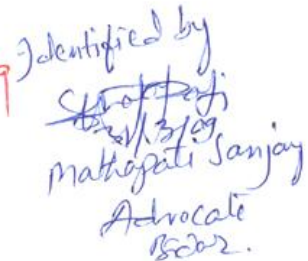 Identified by
Mathapati Sanjay
Advocate
Bidar.